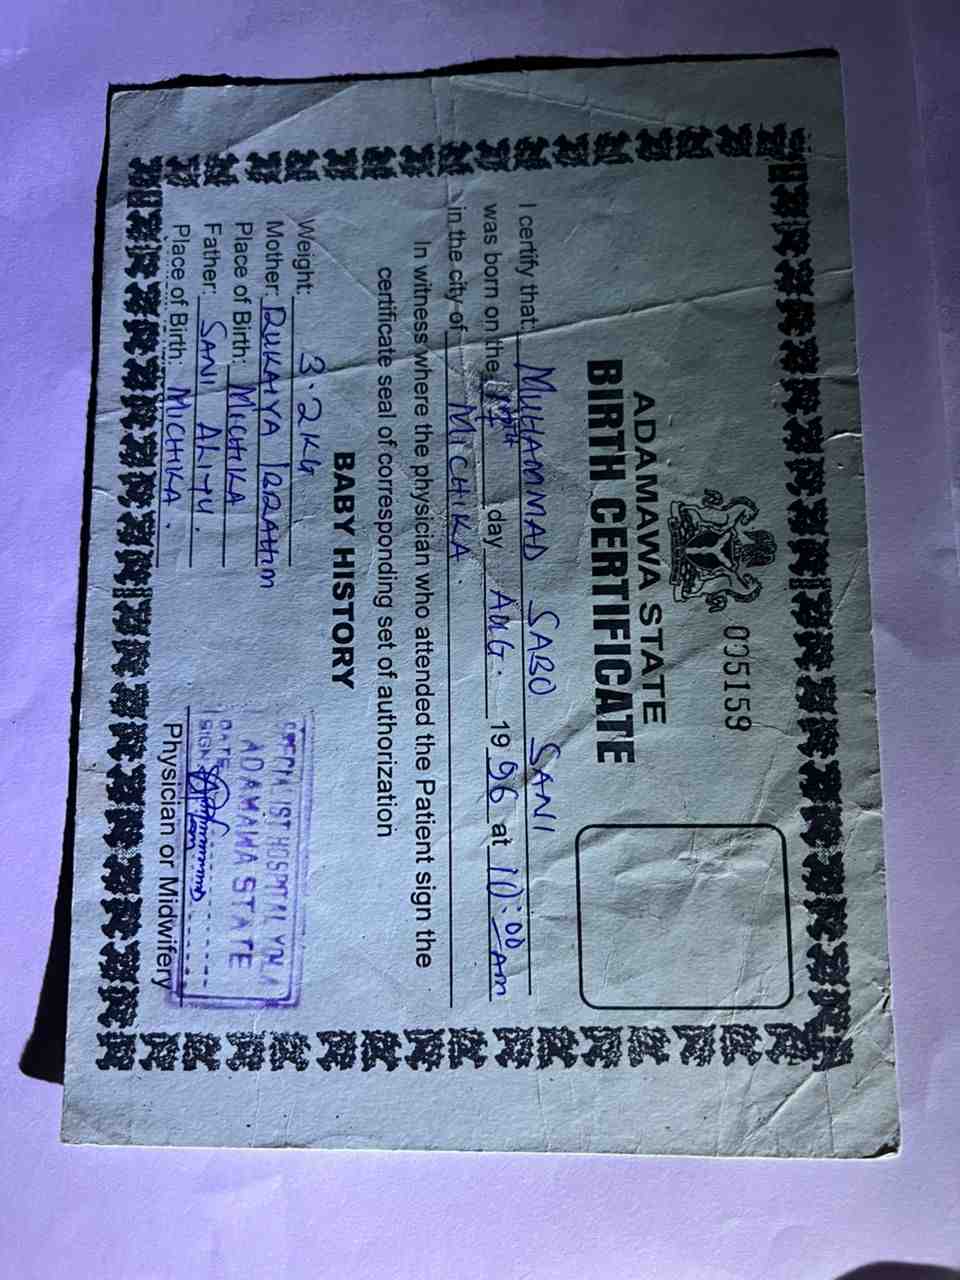 005159
ADAMAWA STATE
BIRTH CERTIFICATE
I certify that: MUHAMMAD SABO SANI
was born on the 17th day AUG. 1996 at 10:00 am
in the city of MICHIKA.
In witness where the physician who attended the Patient sign the
certificate seal of corresponding set of authorization
BABY HISTORY
Weight: 3.2KG
Mother: RUKAIYA IBRAHIM
Place of Birth: MICHIKA
Father: SANI ALIYU.
Place of Birth: MICHIKA.
SPECIALIST HOSPITAL YOLA
ADAMAWA STATE
DATE
SIGN
Physician or Midwifery